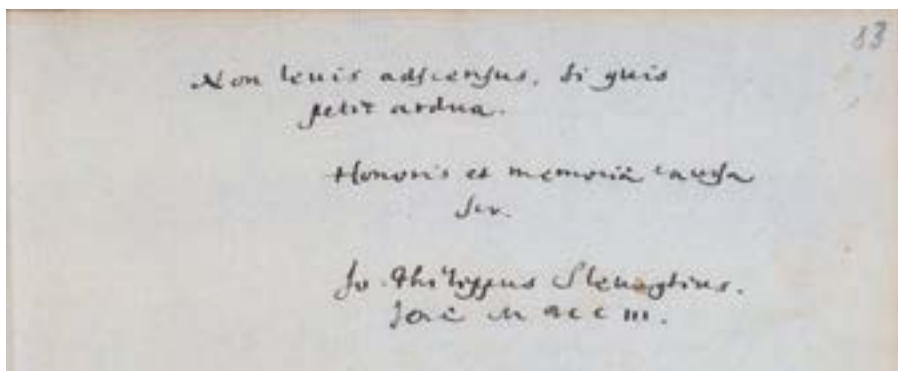 83
Non leuis adscensus, si quis
petit ardua.
Honoris et memoriæ causa
scr.
Jo. Philippus Slevogtius.
Jenæ M DCC III.